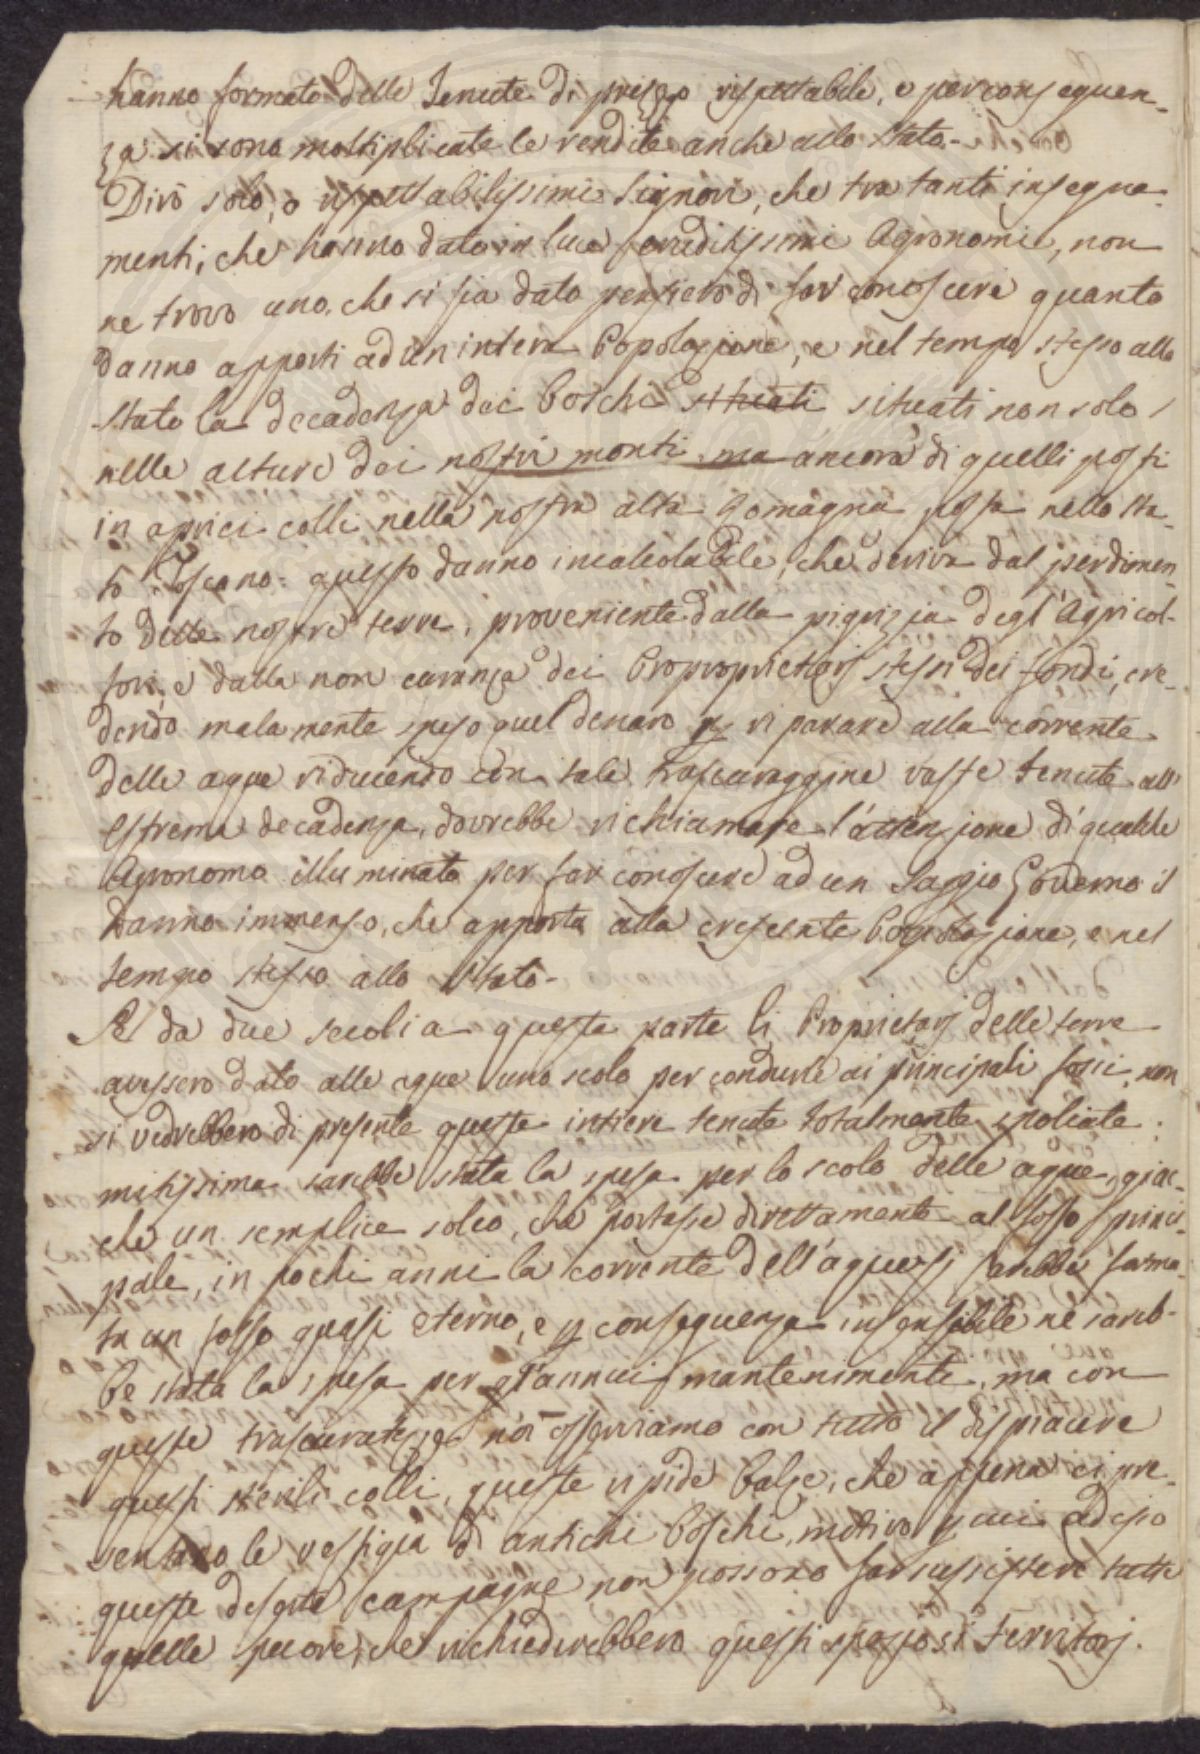 hanno formato delle Tenute di prezzo rispettabile, e per conseguen-
za si sono moltiplicate le rendite anche allo Stato.-
Dirò solo, o rispettabilissimi Signori, che tra tanti insegna-
menti, che hanno dato in luce eruditissimi Agronomi, non
ne trovo uno, che si sia dato pensiero di far conoscere quanto
danno apporti ad un intera Popolazione, e nel tempo stesso allo
Stato la decadenza dei Boschi situati situati non solo
nelle alture dei nostri monti ma ancora di quelli posti
in aprici colli nella nostra alta Romagna posta nello Sta-
to Toscano: questo danno incalcolabile, che deriva dal perdimen-
to delle nostre terre, proveniente dalla pigrizia degl'Agricol-
tori, e dalla non curanza dei Proproprietarj stessi dei fondi, cre-
dendo malamente speso quel denaro p riparare alla corrente
delle aque riducendo con tale trascuraggine vaste tenute all'
estrema decadenza, dovrebbe richiamare l'attenzione di qualche
Agronomo illuminato per far conoscere ad un Saggio Governo il
danno immenso, che apporta alla crescente Popolazione, e nel
tempo stesso allo Stato-
Se da due secoli a questa parte li Proprietarj delle terre
avessero dato alle aque uno scolo per condurle ai principali fossi, non
si vedrebbero di presente queste intiere tenute totalmente spoliate:
mitissima sarebbe stata la spesa per lo scolo delle aque, giac-
che un semplice solco, che portasse direttamente al fosso princi-
pale, in pochi anni la corrente dell'aque si sarebbe forma-
ta un fosso quasi eterno, e p conseguenza insensibile ne sareb-
be stata la spesa per gl'annui mantenimenti, ma con
queste trascuratezze noi osserviamo con tutto il dispiacere
questi sterili colli, queste ripide balze, che appena ci pre-
sentano le vestigia di antichi Boschi, motivo p cui adesso
queste deserte campagne non possono far sussistere tutte
quelle pecore, che richiederebbero questi spaziosi Territorj.